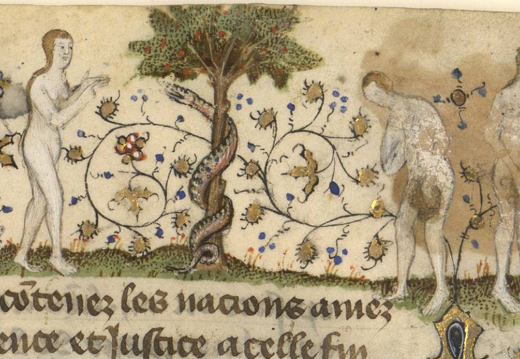 cōtenez les nacions amez
ence et Justice a celle fin